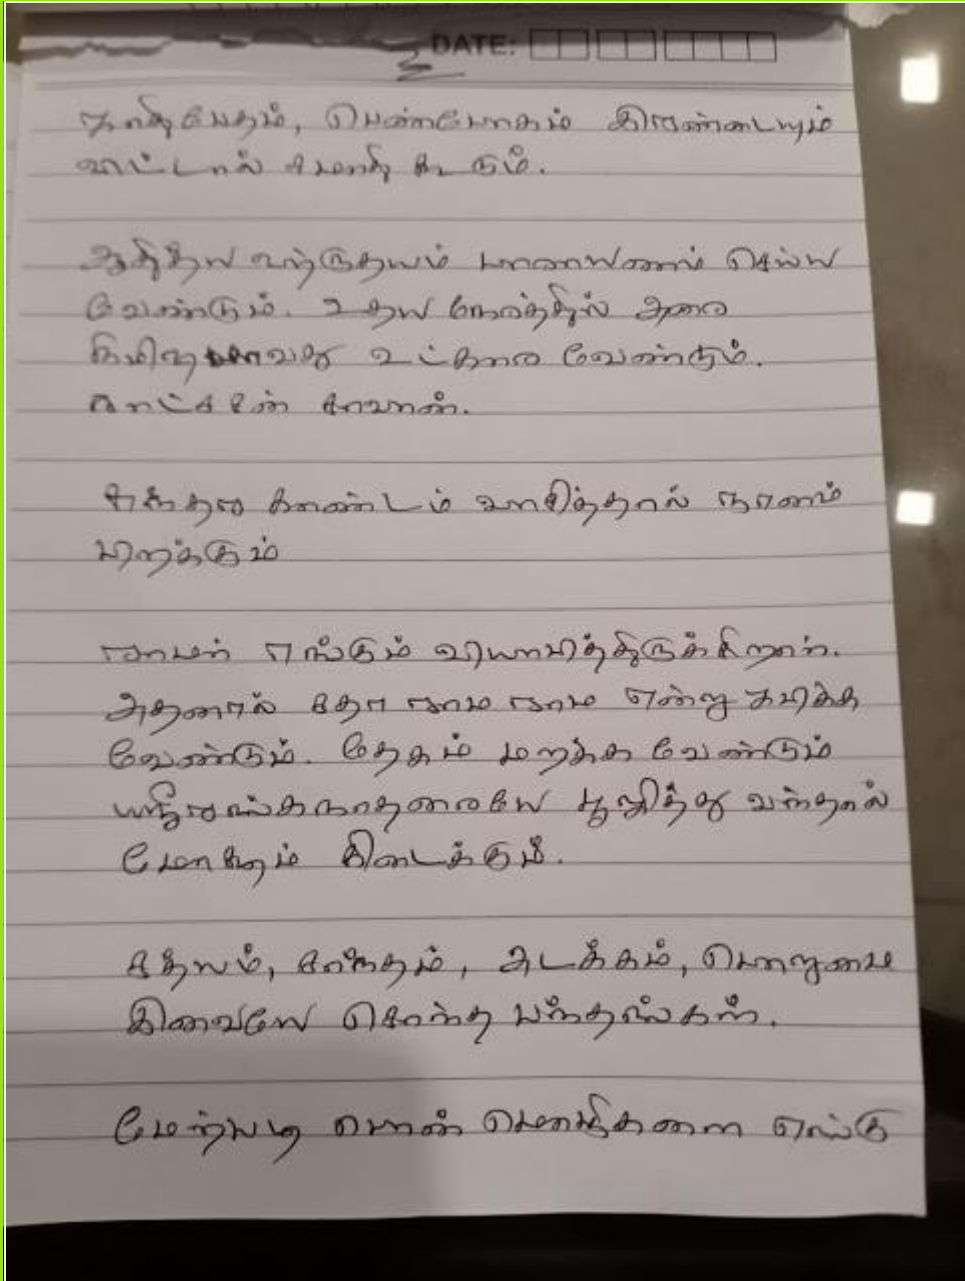 DATE:
ஜாதிபேதம், பெண்போகம் இரண்டையும்
விட்டால் சமாதி கூடும்.
ஆதித்ய ஹ்ருதயம் பாராயணம் செய்ய
வேண்டும். உதய நேரத்தில் அரை
உட்கார வேண்டும்.
காவான்.
சுந்தர காண்டம் வாசித்தால் ஞானம்
பிறக்கும்
ராமர் எங்கும் வியாபித்திருக்கிறார்.
அதனால் சதா ராம ராம என்று ஜபிக்க
வேண்டும். தேகம் மறக்க வேண்டும்
ஸ்ரீரங்கநாதரையே பூஜித்து வந்தால்
மோக்ஷம் கிடைக்கும்.
சத்யம், சாந்தம், அடக்கம், பொறுமை
இவையே சொந்த பந்தங்கள்.
மேற்படி பொன் மொழிகளை எங்கு